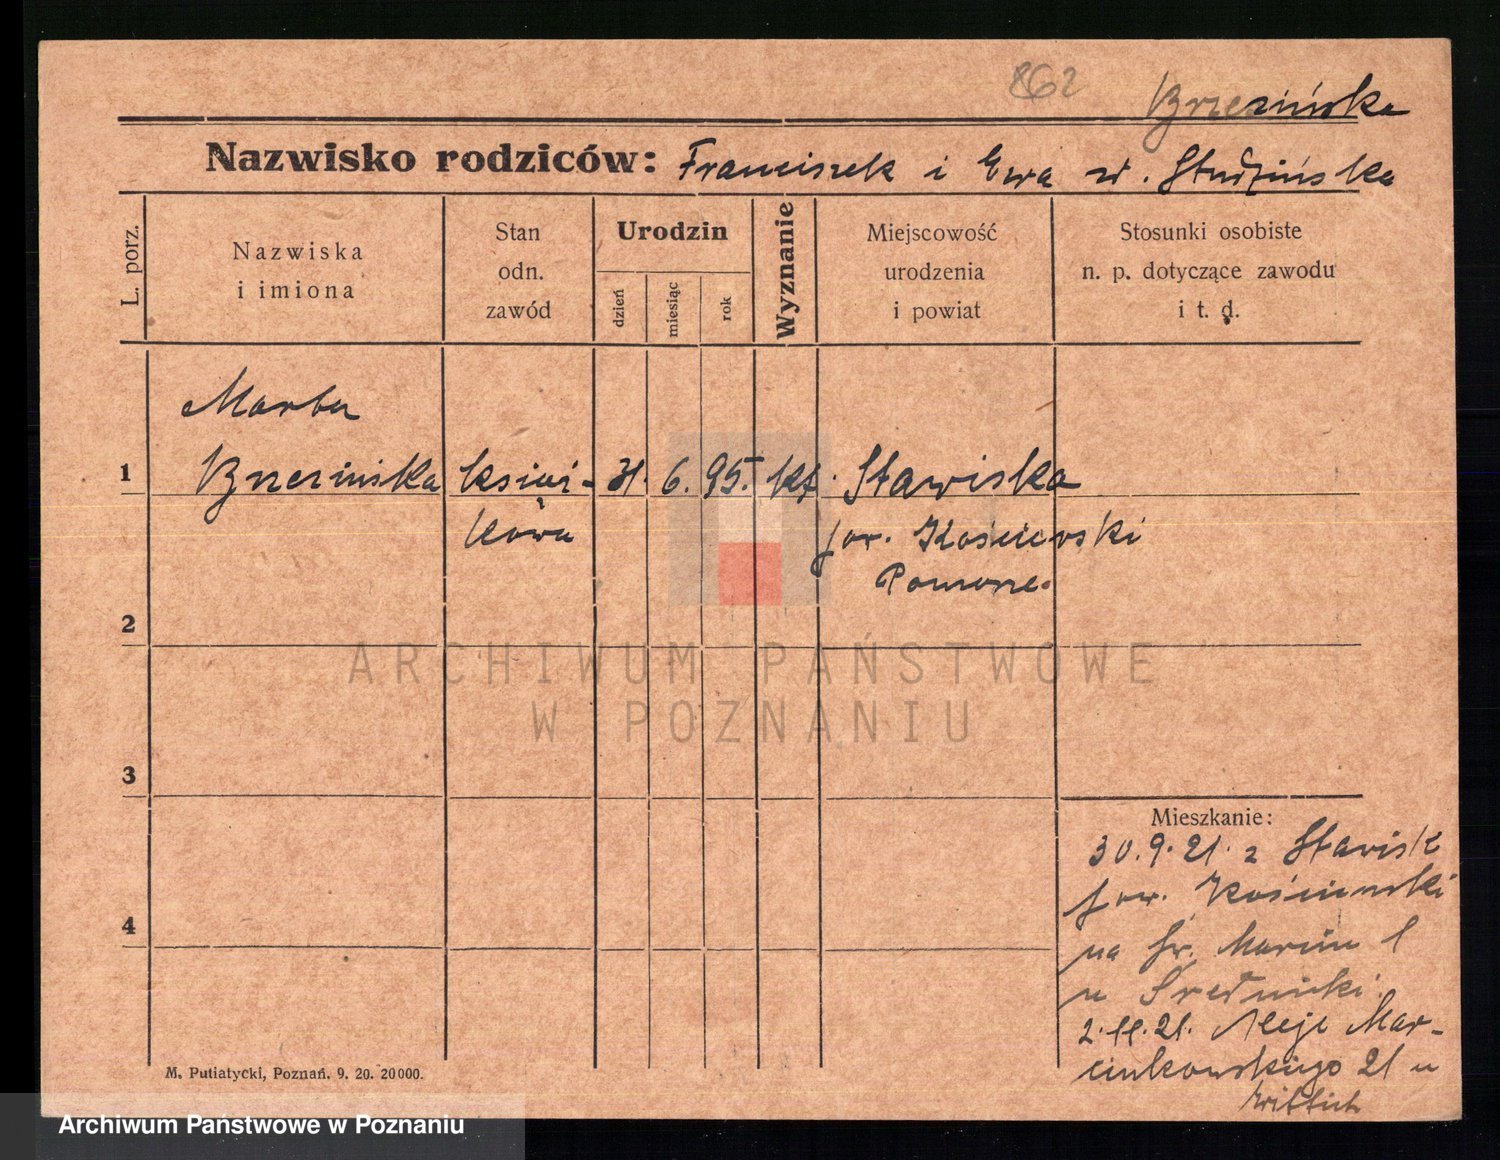 862
Brzezińska
Nazwisko rodziców: Franciszek i Ewa zd. Studzińska
L. porz.
Nazwiska
i imiona
Stan
odn.
zawód
Urodzin
dzień
miesiąc
rok
Wyznanie
Miejscowość
urodzenia
i powiat
Stosunki osobiste
n. p. dotyczące zawodu
i t. d.
Marta
1 Brzezińska 6. 95. kat. Stawiska
kowa pow. Kościerski
Pomorze.
2
ARCHIWUM PAŃSTWOWE
W POZNANIU
3
Mieszkanie:
30.9.21. z Stawisk
pow. Kościerski
4
na Św. Marcin
u Średnicki.
2.11.21. Aleje Mar-
cinkowskiego 21 u
Wittich
M. Putiatycki, Poznań. 9. 20. 20000.
Archiwum Państwowe w Poznaniu